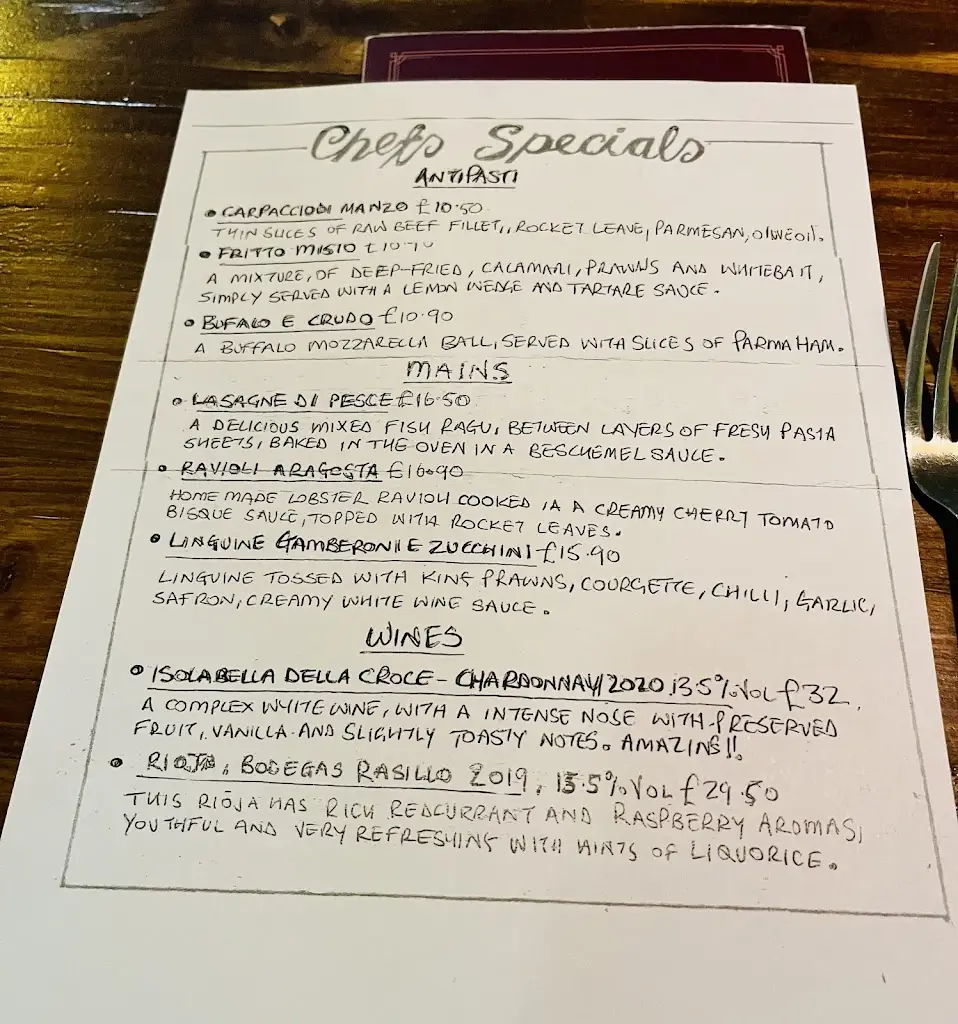 Chefs Specials
ANTIPASTI
• CARPACCIO DI MANZO £10.50
THIN SLICES OF RAW BEEF FILLET,, ROCKET LEAVE, PARMESAN, OLIVE OIL.
• FRITTO MISTO
A MIXTURE, OF DEEP-FRIED, CALAMARI, PRAWNS AND WHITEBAIT,
SIMPLY SERVED WITH A LEMON WEDGE AND TARTARE SAUCE.
• BUFALO E CRUDO £10.90
A BUFFALO MOZZARELLA BALL, SERVED WITH SLICES OF PARMA HAM.
MAINS
• LASAGNE DI PESCE £16.50
A DELICIOUS MIXED FISH RAGU, BETWEEN LAYERS OF FRESH PASTA
SHEETS, BAKED IN THE OVEN IN A BESCHEMEL SAUCE.
• RAVIOLI ARAGOSTA £16.90
HOME MADE LOBSTER RAVIOLI COOKED IN A CREAMY CHERRY TOMATO
BISQUE SAUCE, TOPPED WITH ROCKET LEAVES.
• LINGUINE GAMBERONI E ZUCCHINI £15.90
LINGUINE TOSSED WITH KING PRAWNS, COURGETTE, CHILLI, GARLIC,
SAFRON, CREAMY WHITE WINE SAUCE.
WINES
• ISOLABELLA DELLA CROCE - CHARDONNAY 2020 13.5% VOL £32.
A COMPLEX WHITE WINE, WITH A INTENSE NOSE WITH PRESERVED
FRUIT, VANILLA AND SLIGHTLY TOASTY NOTES. AMAZING!!
• RIOJA, BODEGAS RASILLO 2019, 13.5% VOL £29.50
THIS RIOJA HAS RICH REDCURRANT AND RASPBERRY AROMAS,
YOUTHFUL AND VERY REFRESHING WITH HINTS OF LIQUORICE.